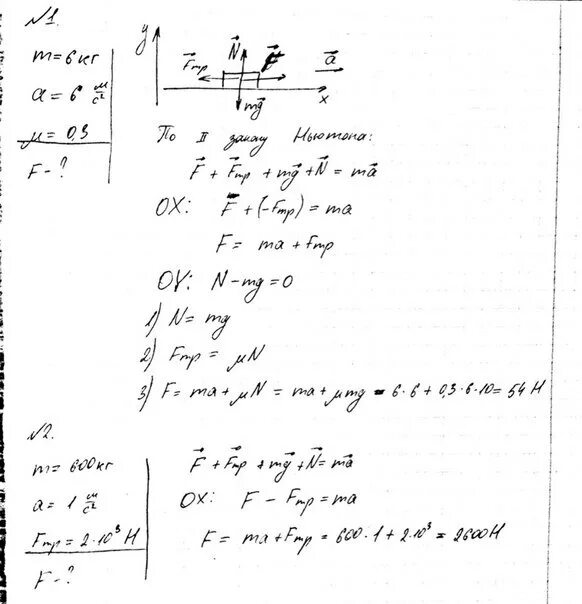 №1.
m = 6 кг
a = 6 м/с²
μ = 0,3
F - ?
y
N⃗
F⃗тр
F⃗
a⃗
mg⃗
x
По II закону Ньютона:
F⃗ + F⃗тр + mg⃗ + N⃗ = ma⃗
OX: F + (-Fтр) = ma
F = ma + Fтр
OY: N - mg = 0
1) N = mg
2) Fтр = μN
3) F = ma + μN = ma + μmg = 6·6 + 0,3·6·10 = 54 Н
№2.
m = 600 кг
a = 1 м/с²
Fтр = 2·10³ Н
F - ?
F⃗ + F⃗тр + mg⃗ + N⃗ = ma⃗
OX: F - Fтр = ma
F = ma + Fтр = 600·1 + 2·10³ = 2600 Н